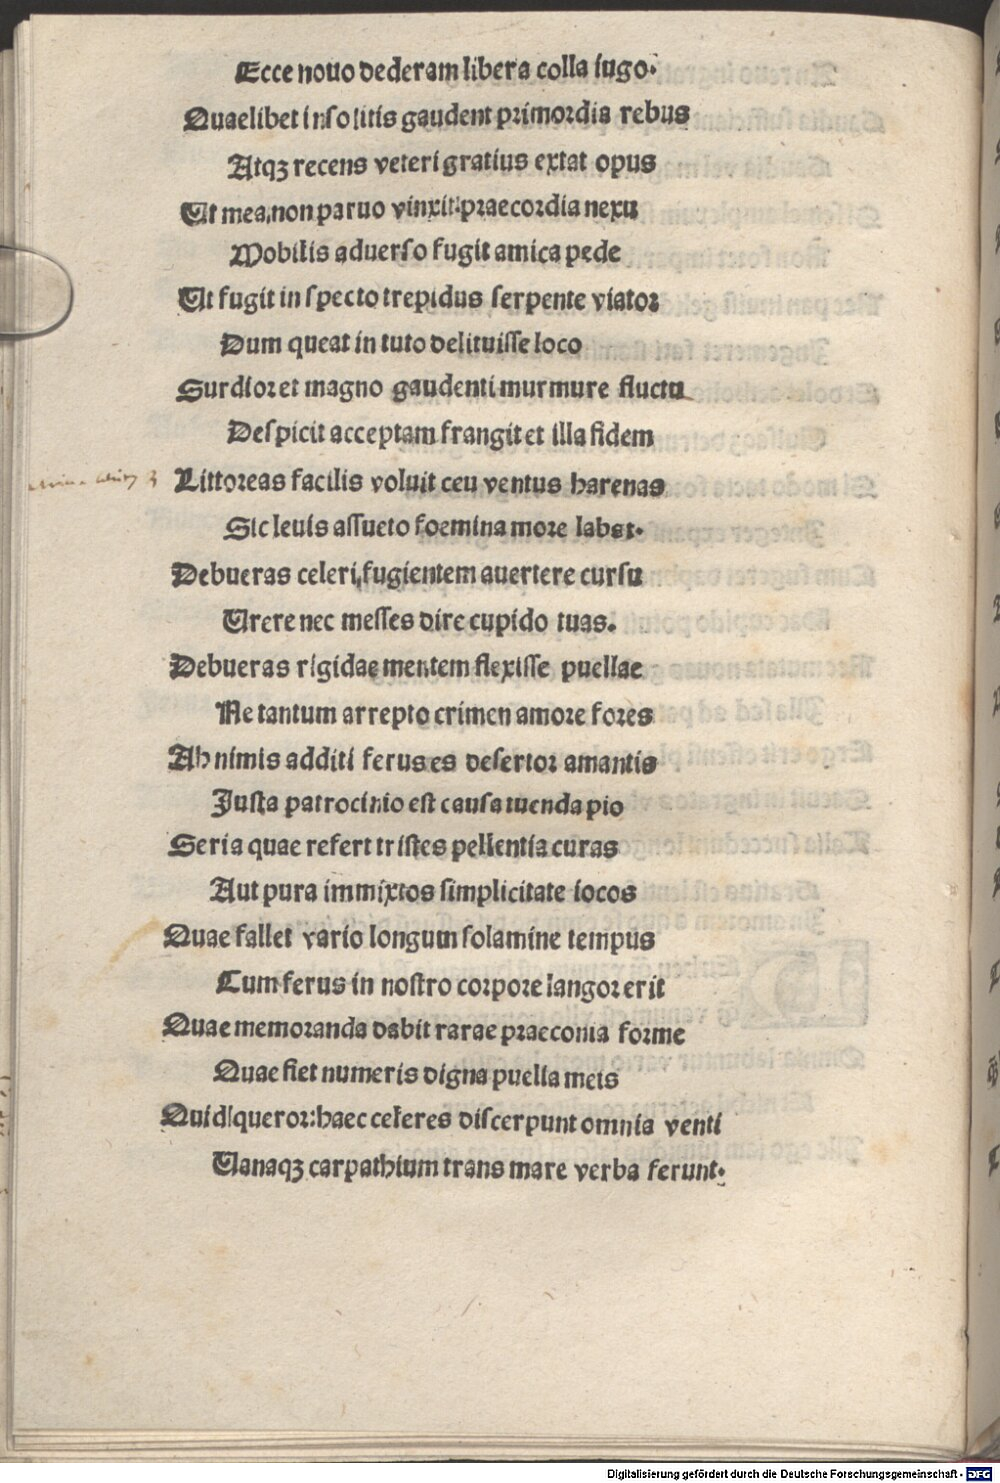 Ecce nouo dederam libera colla iugo.
Quaelibet insolitis gaudent primordia rebus
Atqꝫ recens veteri gratius extat opus
Ut mea, non paruo vinxit: praecordia nexu
Mobilis aduerso fugit amica pede
Ut fugit inspecto trepidus serpente viator
Dum queat in tuto delituisse loco
Surdior et magno gaudenti murmure fluctu
Despicit acceptam frangit et illa fidem
Littoreas facilis voluit ceu ventus harenas
Sic leuis assueto foemina more labat.
Debueras celeri, fugientem auertere cursu
Urere nec messes dire cupido tuas.
Debueras rigidae mentem flexisse puellae
Ne tantum arrepto crimen amore fores
Ah nimis additi ferus es desertor amantis
Justa patrocinio est causa tuenda pio
Seria quae refert tristes pellentia curas
Aut pura immixtos simplicitate iocos
Quae fallet vario longum solamine tempus
Cum ferus in nostro corpore langor erit
Quae memoranda dabit rarae praeconia forme
Quae fiet numeris digna puella meis
Quid queror: haec celeres discerpunt omnia venti
Uanaqꝫ carpathium trans mare verba ferunt.
Digitalisierung gefördert durch die Deutsche Forschungsgemeinschaft - DFG